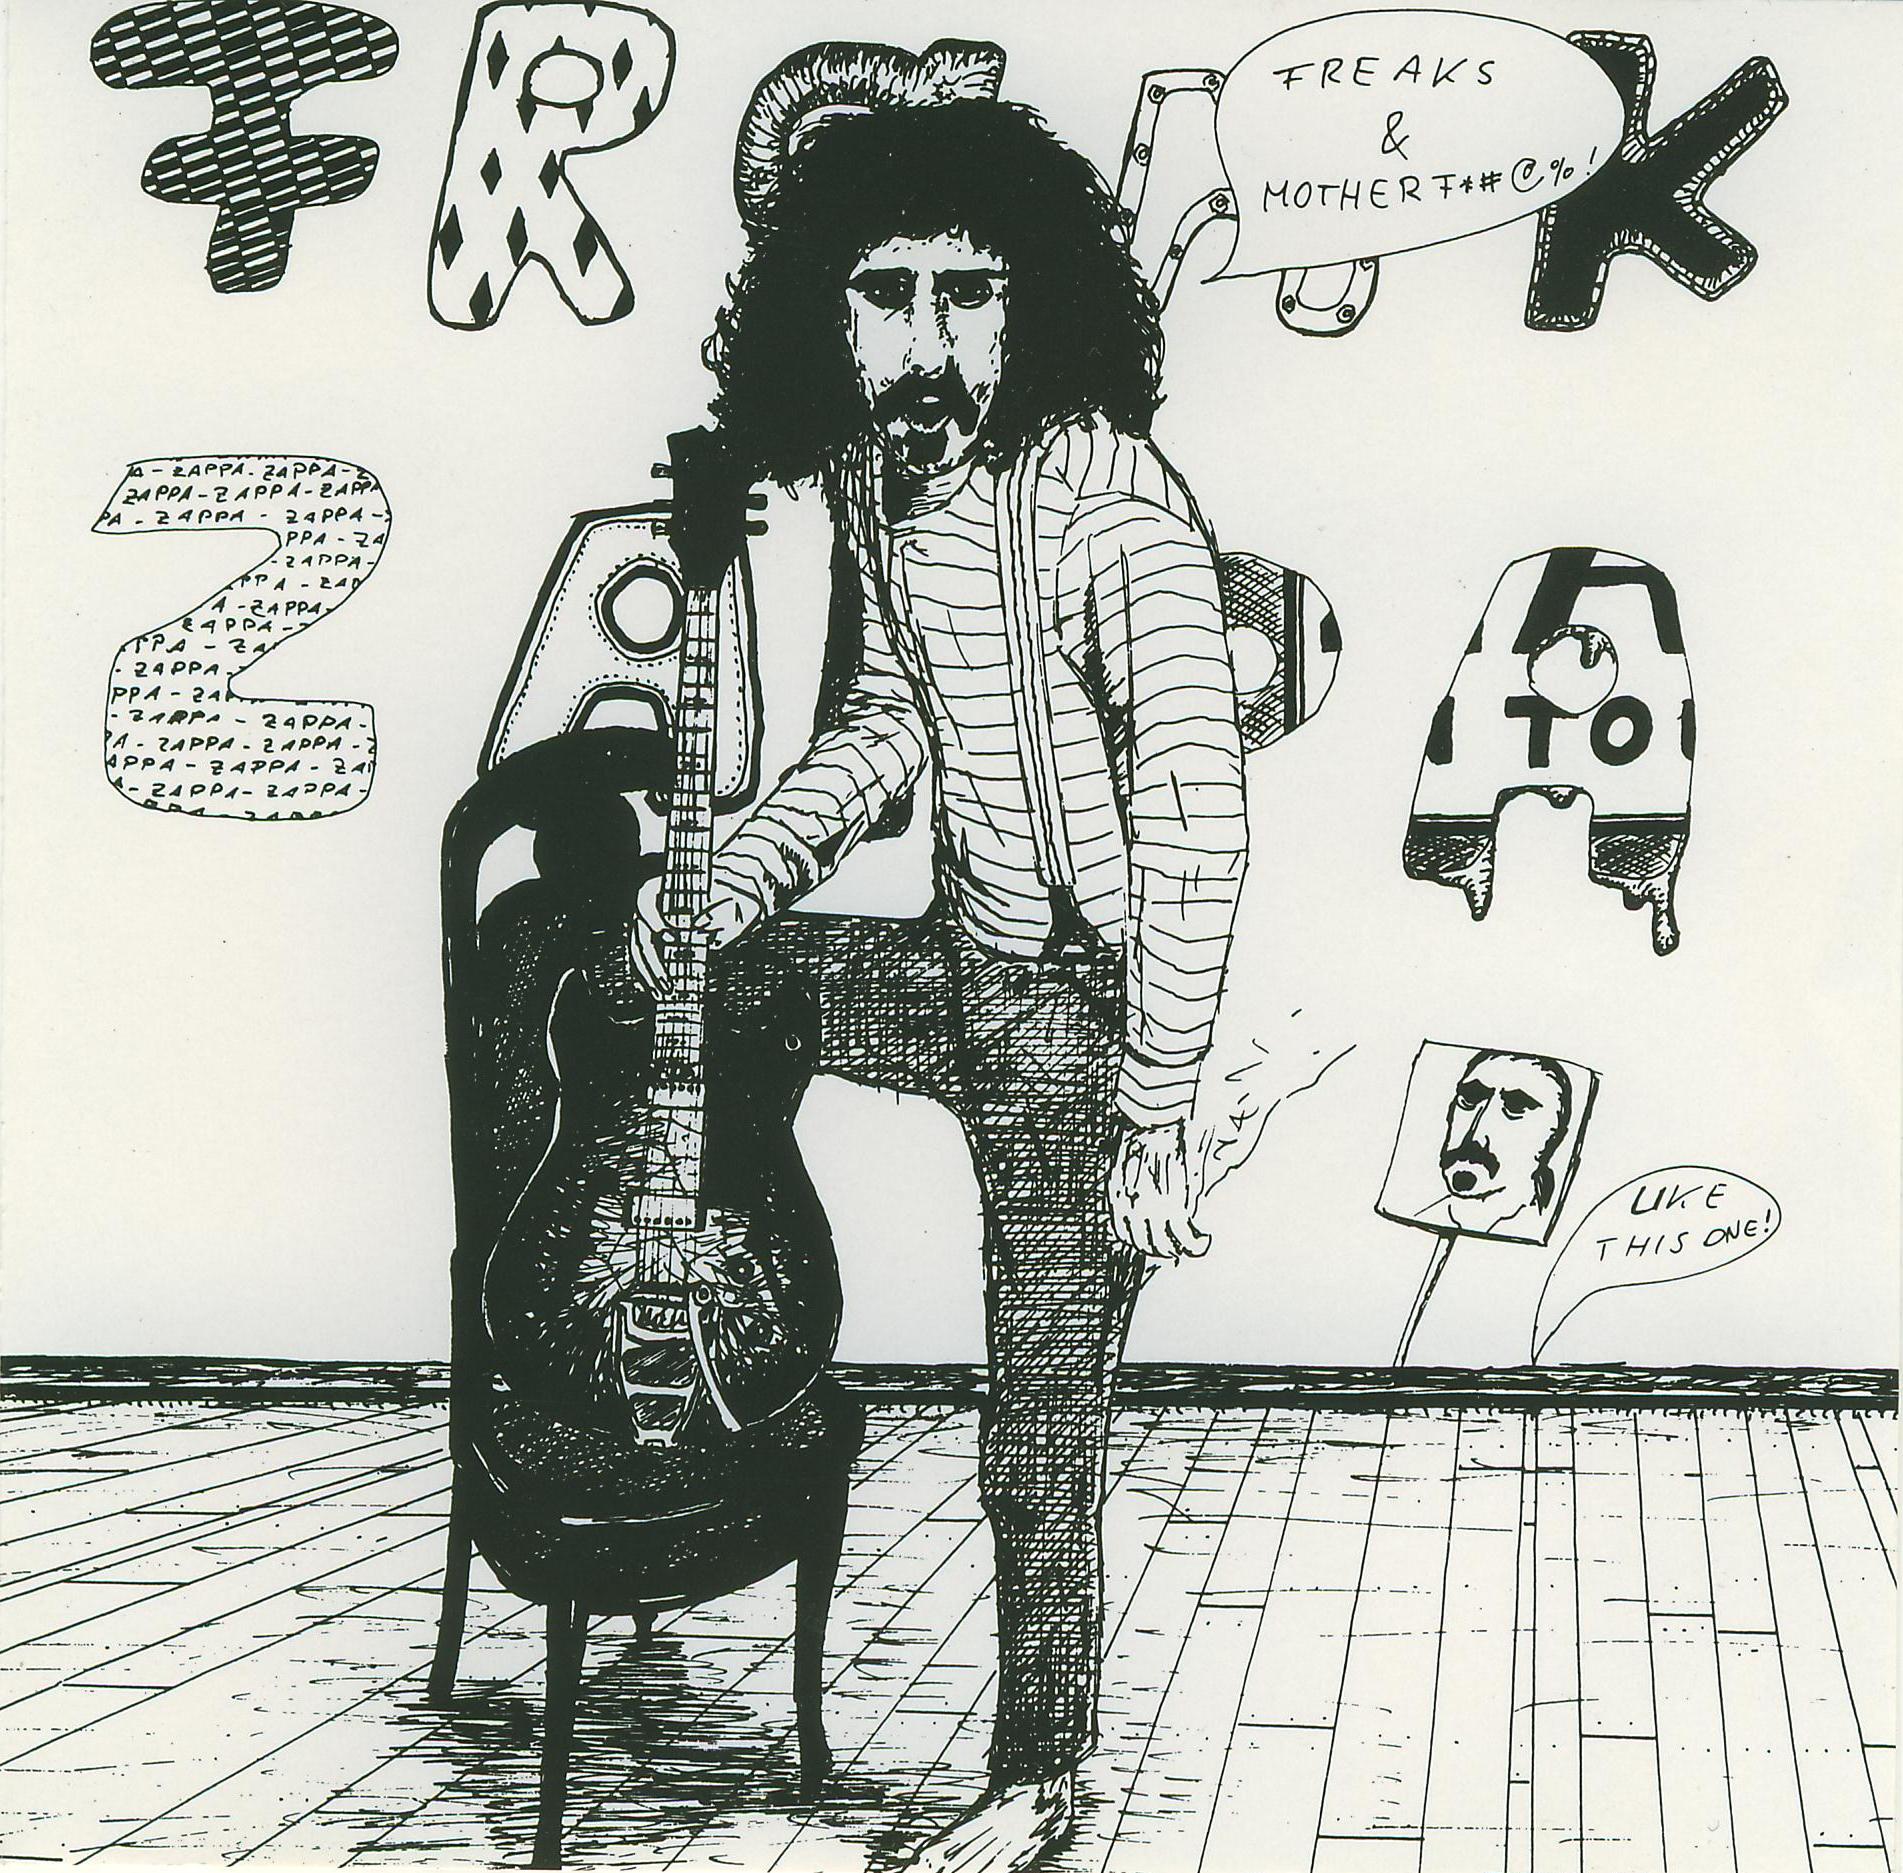 FRANK
FREAKS
&
MOTHERF*#@%!
Z A P A
A - ZAPPA - ZAPPA - Z
ZAPPA - ZAPPA - ZAPPA
PA - ZAPPA - ZAPPA -
PPA - ZA
- ZAPPA -
PPA - ZAP
A - ZAPPA -
ZAPPA -
PPA - ZA
- ZAPPA -
PPA - ZAP
- ZAPPA - ZAPPA -
A - ZAPPA - ZAPPA - Z
APPA - ZAPPA - ZA
A - ZAPPA - ZAPPA -
TO
LIKE
THIS ONE!